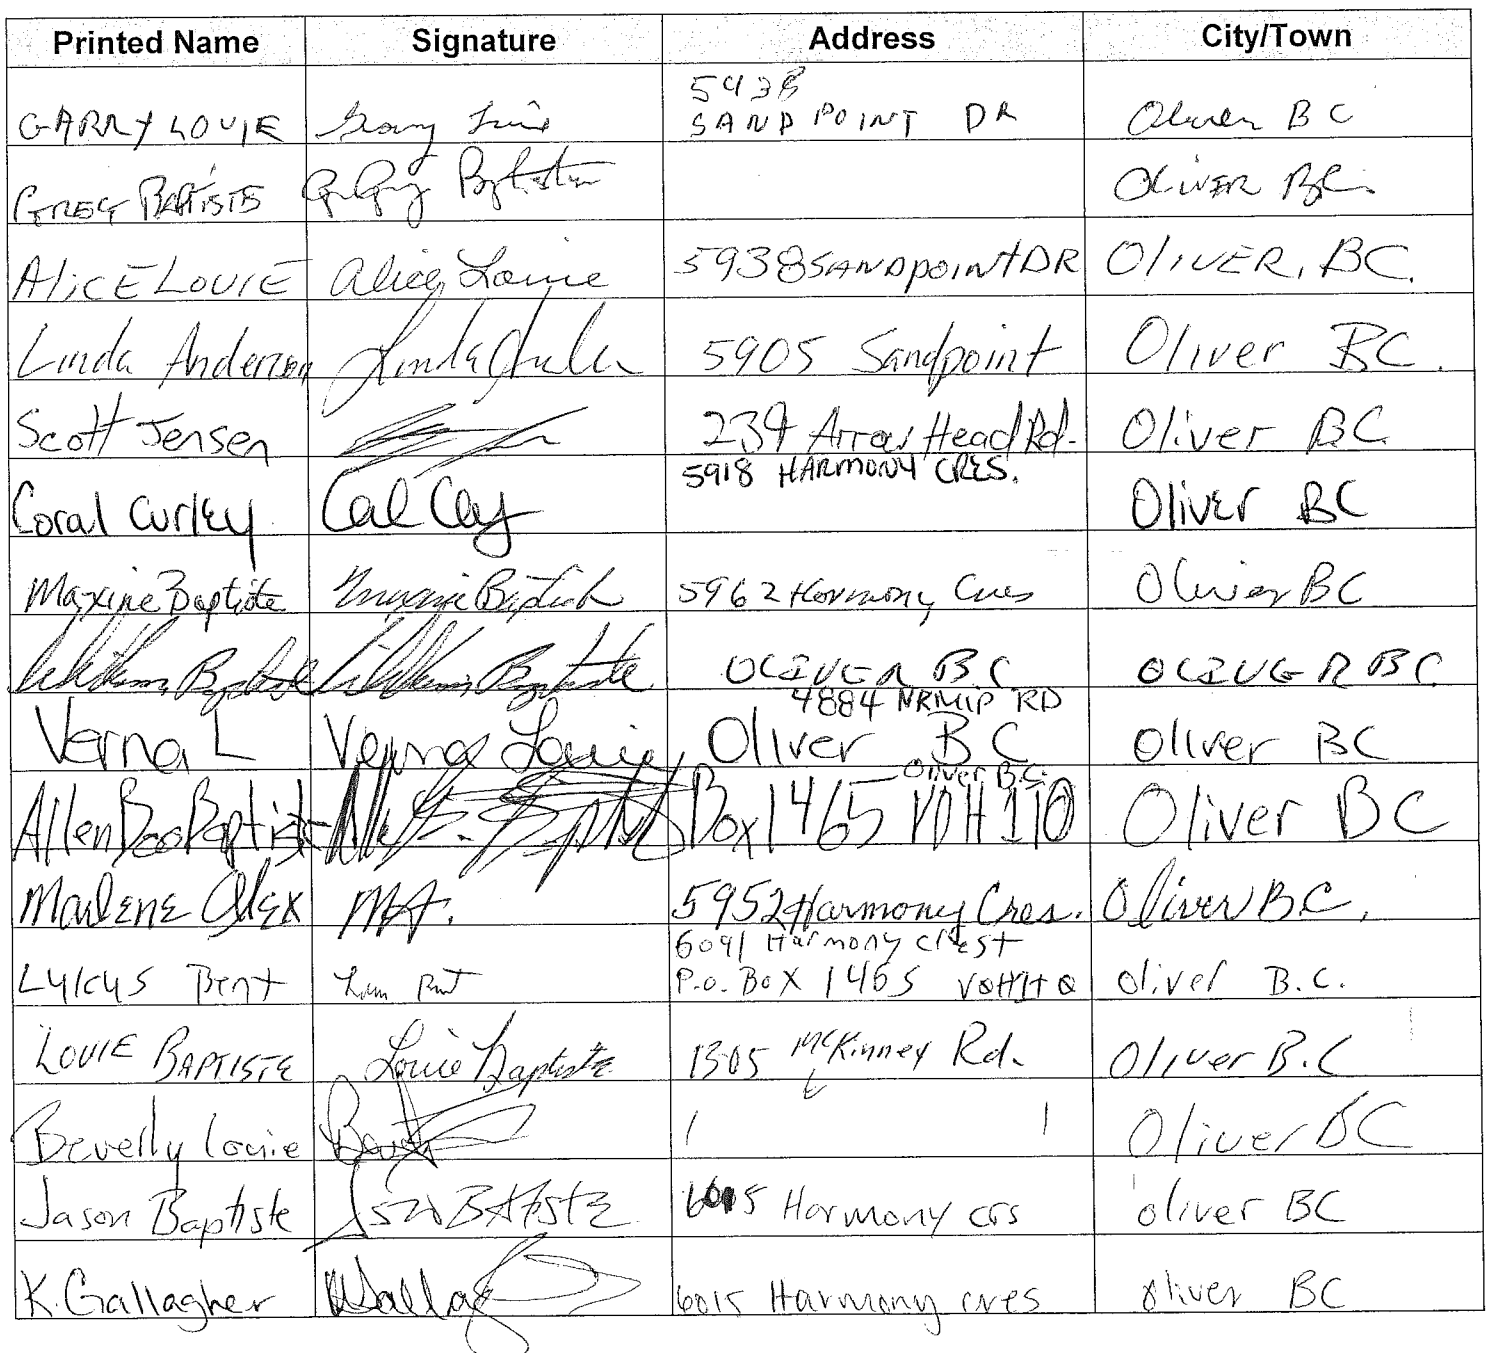 Printed Name Signature Address City/Town
5938
GARRY LOUIE Garry Louie SAND POINT DR Oliver BC
GREG BAPTISTE Baptiste OLIVER BC
ALICE LOUIE Alice Louie 5938 SANDPOINT DR OLIVER, BC.
Linda Anderson Linda 5905 Sandpoint Oliver BC.
Scott Jensen 239 Arrow Head Rd. Oliver BC
5918 HARMONY CRES.
Coral Curley Oliver BC
Maxine Baptiste Maxine Baptiste 5962 Harmony Cres Oliver BC
William Baptiste William Baptiste OLIVER BC OLIVER BC
4884 NKMIP RD
Verna L Verna Louie Oliver BC Oliver BC
Oliver B.C.
Allen Boo Baptist Box 1465 V0H 1T0 Oliver BC
Marlene Alex M.A. 5952 Harmony Cres. Oliver BC.
6091 Harmony Crest
Lylcys Bent P.O. Box 1465 V0H1T0 Oliver B.C.
LOUIE BAPTISTE Louie Baptiste 1305 McKinney Rd. Oliver B.C
Beverly Louie Oliver BC
Jason Baptiste 6015 Harmony crs oliver BC
K. Gallagher 6015 Harmony cres oliver BC